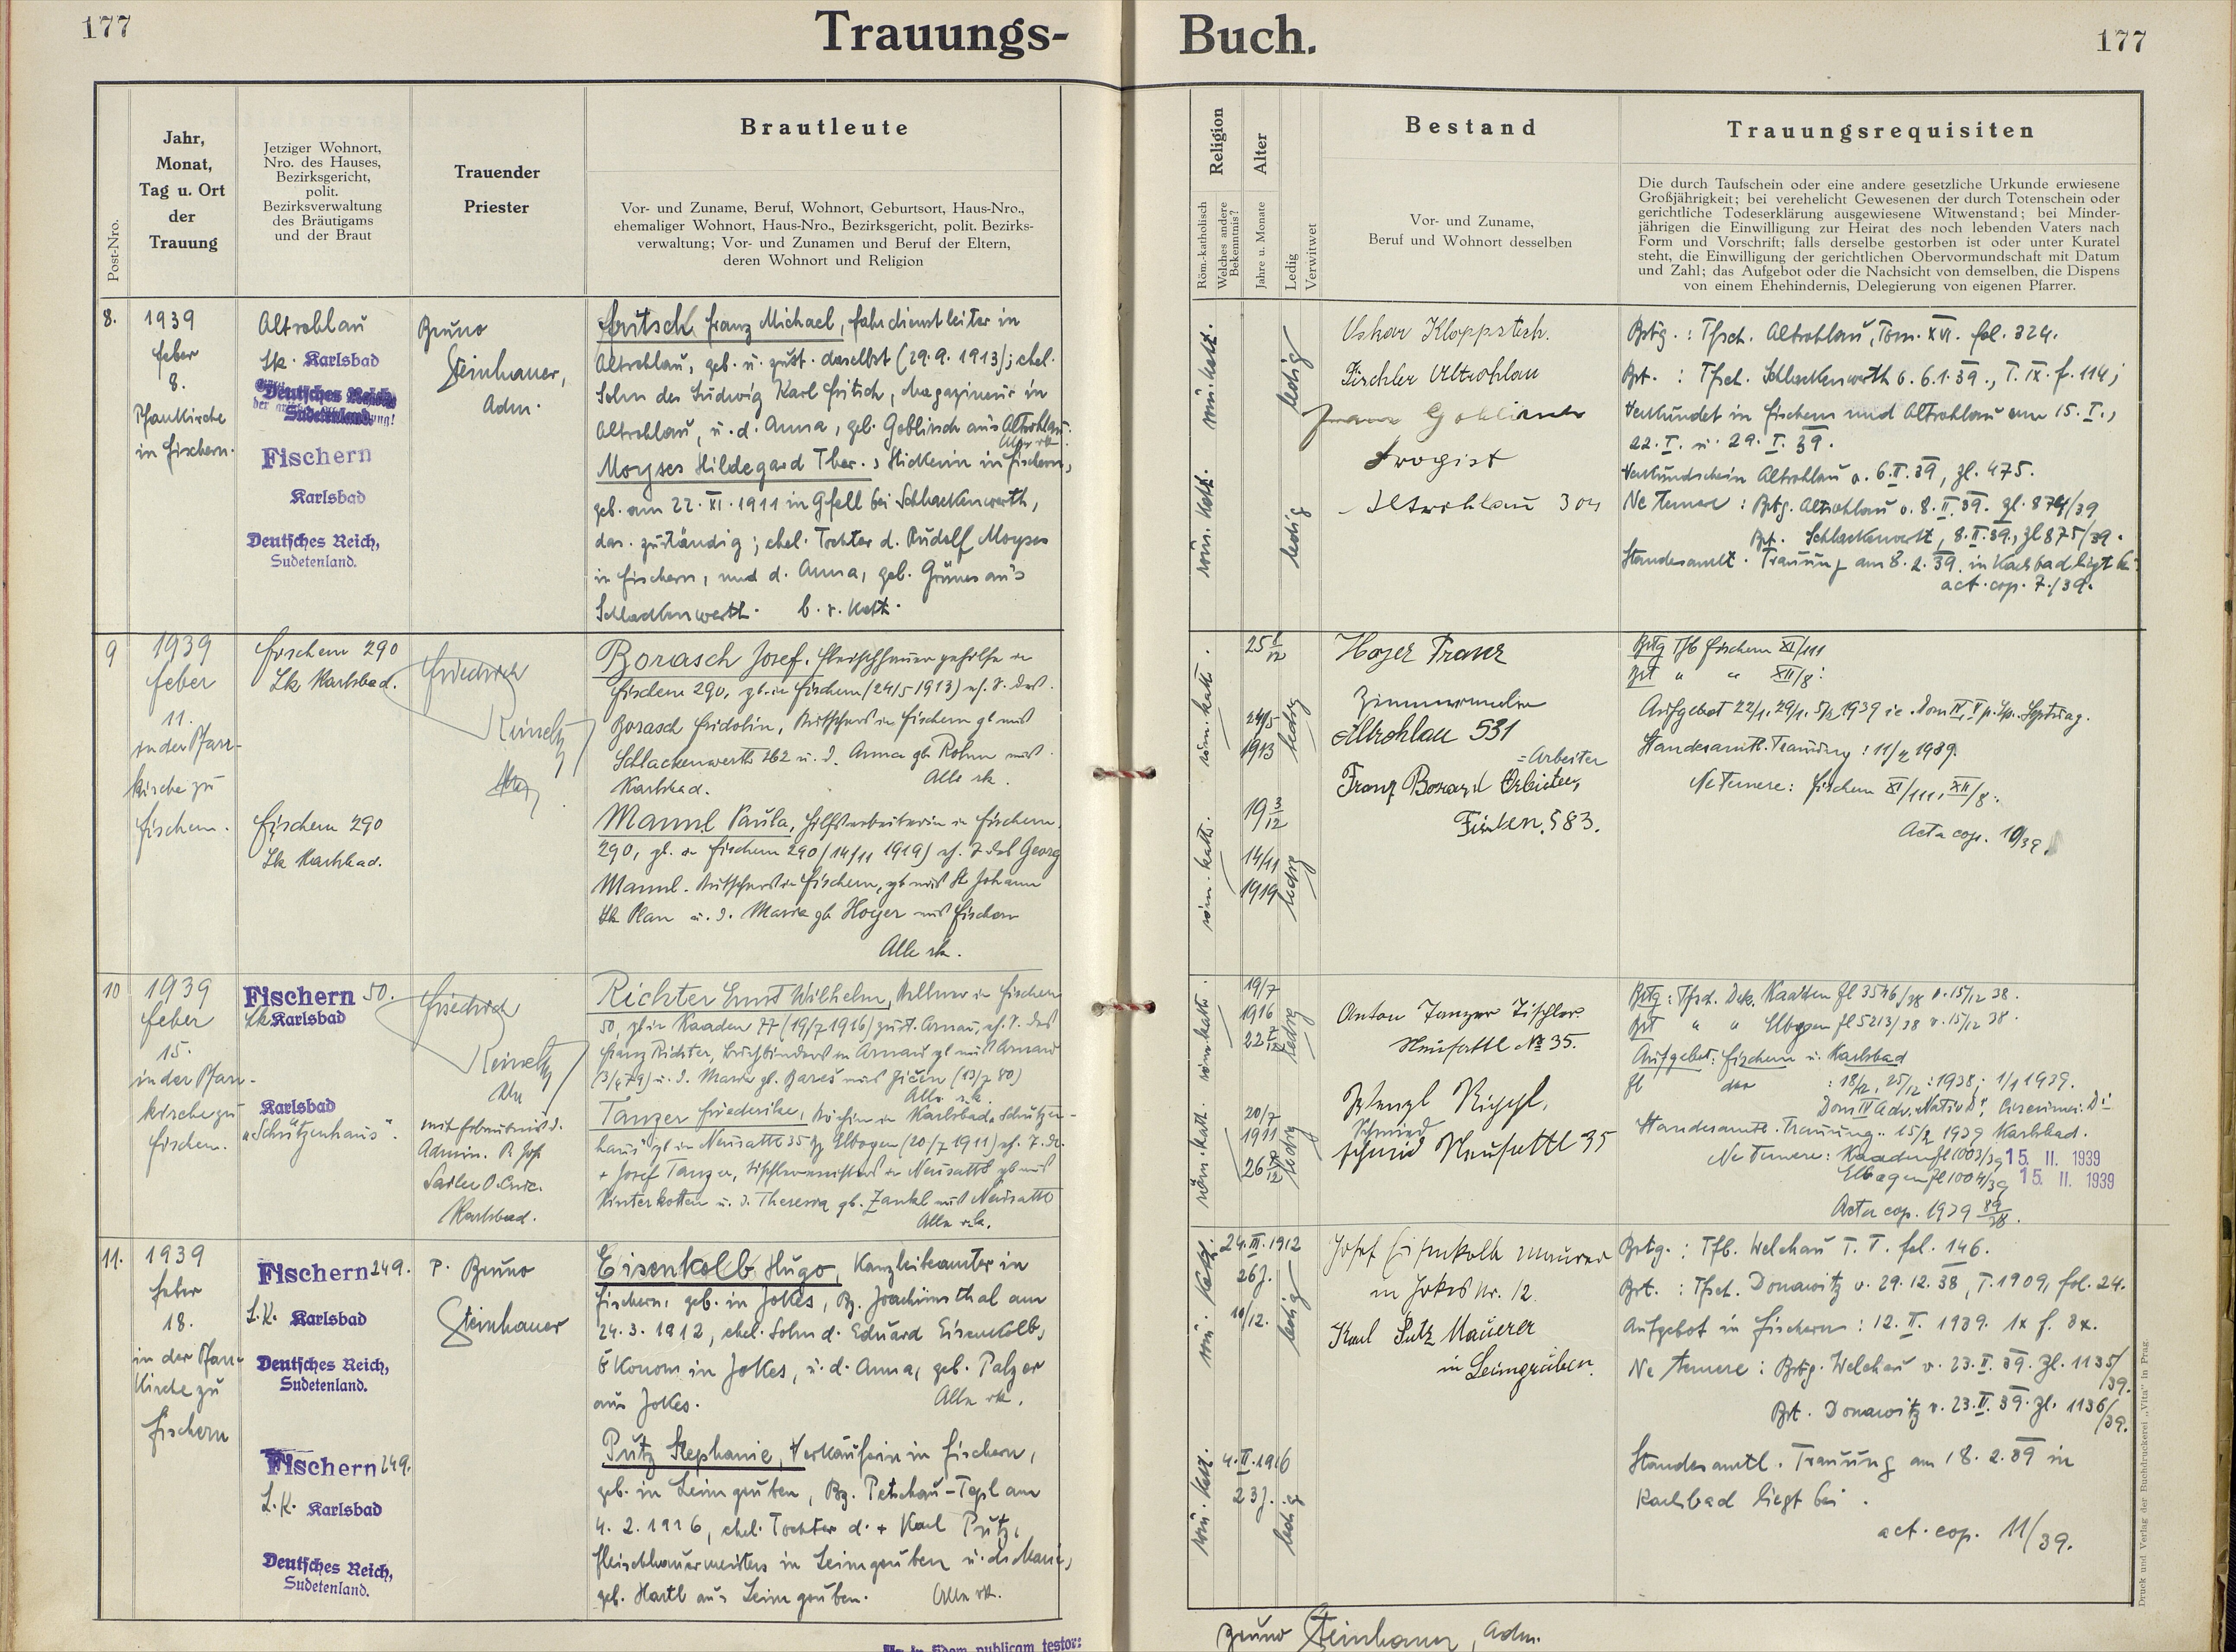 177
Trauungs-
Buch.
177
Post-Nro.
Jahr,
Monat,
Tag u. Ort
der
Trauung
Jetziger Wohnort,
Nro. des Hauses,
Bezirksgericht,
polit.
Bezirksverwaltung
des Bräutigams
und der Braut
Trauender
Priester
Brautleute
Vor- und Zuname, Beruf, Wohnort, Geburtsort, Haus-Nro.,
ehemaliger Wohnort, Haus-Nro., Bezirksgericht, polit. Bezirks-
verwaltung; Vor- und Zunamen und Beruf der Eltern,
deren Wohnort und Religion
Religion
Röm.-katholisch
Welches andere
Bekenntnis?
Alter
Jahre u. Monate
Ledig
Verwitwet
Bestand
Vor- und Zuname,
Beruf und Wohnort desselben
Trauungsrequisiten
Die durch Taufschein oder eine andere gesetzliche Urkunde erwiesene
Großjährigkeit; bei verehelicht Gewesenen der durch Totenschein oder
gerichtliche Todeserklärung ausgewiesene Witwenstand; bei Minder-
jährigen die Einwilligung zur Heirat des noch lebenden Vaters nach
Form und Vorschrift; falls derselbe gestorben ist oder unter Kuratel
steht, die Einwilligung der gerichtlichen Obervormundschaft mit Datum
und Zahl; das Aufgebot oder die Nachsicht von demselben, die Dispens
von einem Ehehindernis, Delegierung von eigenen Pfarrer.
8.
1939
feber
8.
Pfarrkirche
in Fischern.
Altrohlau
Lk. Karlsbad
Deutsches Reich
Sudetenland
Fischern
Karlsbad
Deutsches Reich,
Sudetenland.
Bruno
Steinhauer,
Adm.
Fritsch Franz Michael, Fahrdienstleiter in
Altrohlau, geb. u. zust. daselbst (29.9.1913); ehel.
Sohn des Ludwig Karl Fritsch, Magazineur in
Altrohlau, u. d. Anna, geb. Goblirsch aus Altrohlau.
Alle rk.
Moyses Hildegard Ther., Stickerin in Fischern,
geb. am 22. XI. 1911 in Gfell bei Schlackenwerth,
das. zuständig; ehel. Tochter d. Rudolf Moyses
in Fischern, und d. Anna, geb. Grünes aus
Schlackenwerth. b. r. kath.
röm. kath.
ledig
röm. kath.
ledig
Oskar Kloppstech.
Tischler Altrohlau
Franz Goblirsch
Drogist
Altrohlau 304
Brtg. : Tfsch. Altrohlau, Tom. XVI. fol. 324.
Brt. : Tfsch. Schlackenwerth v. 6.1.39., T. IX. f. 114;
Verkündet in Fischern und Altrohlau am 15. I.,
22. I. u. 29. I. 39.
Verkündschein Altrohlau v. 6. II. 39, Zl. 475.
Ne temere : Brtg. Altrohlau v. 8. II. 39. Zl. 874/39
Brt. Schlackenwerth, 8. II. 39., Zl 875/39.
Standesamtl. Trauung am 8. 2. 39. in Karlsbad liegt bei
act. cop. 7./39.
9
1939
feber
11.
in der Pfarr-
kirche zu
Fischern.
Fischern 290
Lk Karlsbad.
Fischern 290
Lk Karlsbad.
Friedrich
Reinelt
Borasch Josef, Fleischhauergehilfe in
Fischern 290, gb. in Fischern (24/5 1913) eh. S. des
Borasch Fridolin, Kutschers in Fischern gb aus
Schlackenwerth 262 u. d. Anna gb Rohm aus
Karlsbad. Alle rk.
Mannl Paula, Hilfsarbeiterin in Fischern
290, gb. in Fischern 290 (14/11 1919) eh. T. des Georg
Mannl. Kutschers in Fischern, gb aus St Johann
Lk Plan u. d. Maria gb Hoyer aus Fischern
Alle rk.
röm. kath.
24/5
1913
ledig
röm. kath.
19 3/12
14/11
1919
ledig
Hoyer Franz
Altrohlau 531
= Arbeiter
Franz Borasch Arbeiter,
Fischern 583.
Brtg Tfb Fischern XI/111
Brt " " XII/8:
Aufgebot 22/1, 29/1, 5/2 1939
Standesamtl. Trauung : 11/2 1939.
Ne Temere: Fischern XI/111, XII/8.
Acta cop. 10/39.
10
1939
feber
15.
in der Pfarr-
kirche zu
Fischern.
Fischern 50.
Lk Karlsbad
Karlsbad
"Schützenhaus".
Friedrich
Reinelt
mit Erlaubnis d.
Admin. P. Jos.
Sailer O. Cruc.
Karlsbad.
Richter Ernst Wilhelm, Kellner in Fischern
50, gb in Kaaden 77 (19/7 1916) zust. Arnau, eh. S. des
Franz Richter, Buchbinders in Arnau gb aus Arnau
(3/4 79) u. d. Maria gb. Bareš aus Jičin (13/7 80)
Alle rk.
Tanzer Friederike, Köchin in Karlsbad, Schützen-
haus gb in Neusattl 35 Bz Elbogen (20/7 1911) eh. T. d.
+ Josef Tanzer, Tischlermeisters in Neusattl gb aus
Hinterkotten u. d. Theresia gb. Zankl aus Neusattl
Alle rk.
röm. kath.
19/7
1916
ledig
röm. kath.
20/7
1911
ledig
Anton Tanzer Tischler
Neusattl № 35.
Wenzl
Schmied
Schmied Neusattl 35
Brtg : Tfsch. Dek. Kaaden Zl 3546/38 v. 15/12 38.
Brt " " Elbogen Zl 5213/38 v. 15/12 38.
Aufgebot: Fischern u. Karlsbad
: 18/12, 25/12 : 1938; 1/1 1939.
Standesamtl. Trauung : 15/2 1939 Karlsbad.
Ne Temere: Kaaden Zl 1003/39 15. II. 1939
Elbogen Zl 1004/39 15. II. 1939
Acta cop. 1939 89/38.
11.
1939
feber
18.
in der Pfarr-
kirche zu
Fischern
Fischern 249.
L.K. Karlsbad
Deutsches Reich,
Sudetenland.
Fischern 249.
L.K. Karlsbad
Deutsches Reich,
Sudetenland.
P. Bruno
Steinhauer
Eisenkolb Hugo, Kanzleibeamter in
Fischern, geb. in Jokes, Bz. Joachimsthal am
24. 3. 1912, ehel. Sohn d. Eduard Eisenkolb,
Ökonom in Jokes, u. d. Anna, geb. Palzer
aus Jokes. Alle rk.
Putz Stephanie, Verkäuferin in Fischern,
geb. in Leimgruben, Bz. Petschau-Tepl am
4. 2. 1916, ehel. Tochter d. + Karl Putz,
Fleischhauermeisters in Leimgruben u. d. Marie,
geb. Hartl aus Leimgruben. Alle rk.
röm. kath.
24. III. 1912
26 J.
10/12.
ledig
röm. kath.
4. II. 1916
23 J.
ledig
Josef Eisenkolb Maurer
in Jokes Nr. 12.
Karl Putz Maurer
in Leimgruben.
Brtg. : Tfb. Welchau T. V. fol. 146.
Brt. : Tfsch. Donawitz v. 29. 12. 38, T. 1909, fol. 24.
Aufgebot in Fischern : 12. II. 1939. 1x f. 3x.
Ne temere : Brtg. Welchau v. 23. II. 39. Zl. 1135/39.
Brt. Donawitz v. 23. II. 39. Zl. 1136/39.
Standesamtl. Trauung am 18. 2. 39 in
Karlsbad liegt bei .
act. cop. 11/39.
Bruno Steinhauer, Adm.
in fidem publicam testor:
Druck und Verlag der Buchdruckerei „Vita" in Prag